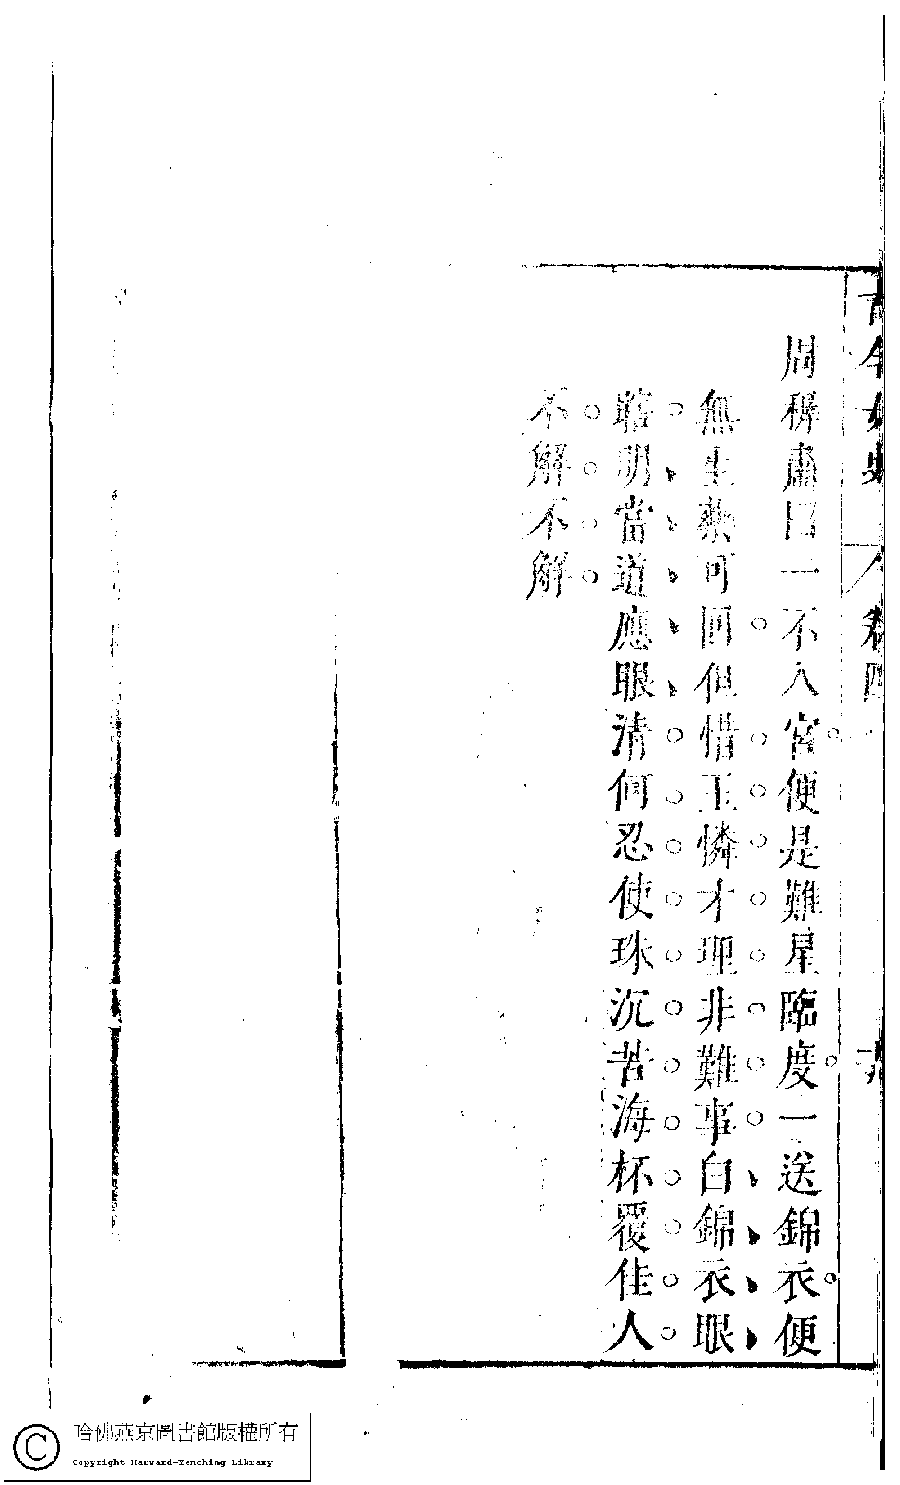 古今女史
卷四
周穉肅曰一不入宮便是難星臨度一送錦衣便
無生款可回但惜玉憐才理非難事白錦衣眼
瞎明當道應眼清何忍使珠沉苦海杯覆佳人
不解不解
哈佛燕京圖書館版權所有
Copyright Harvard-Yenching Library